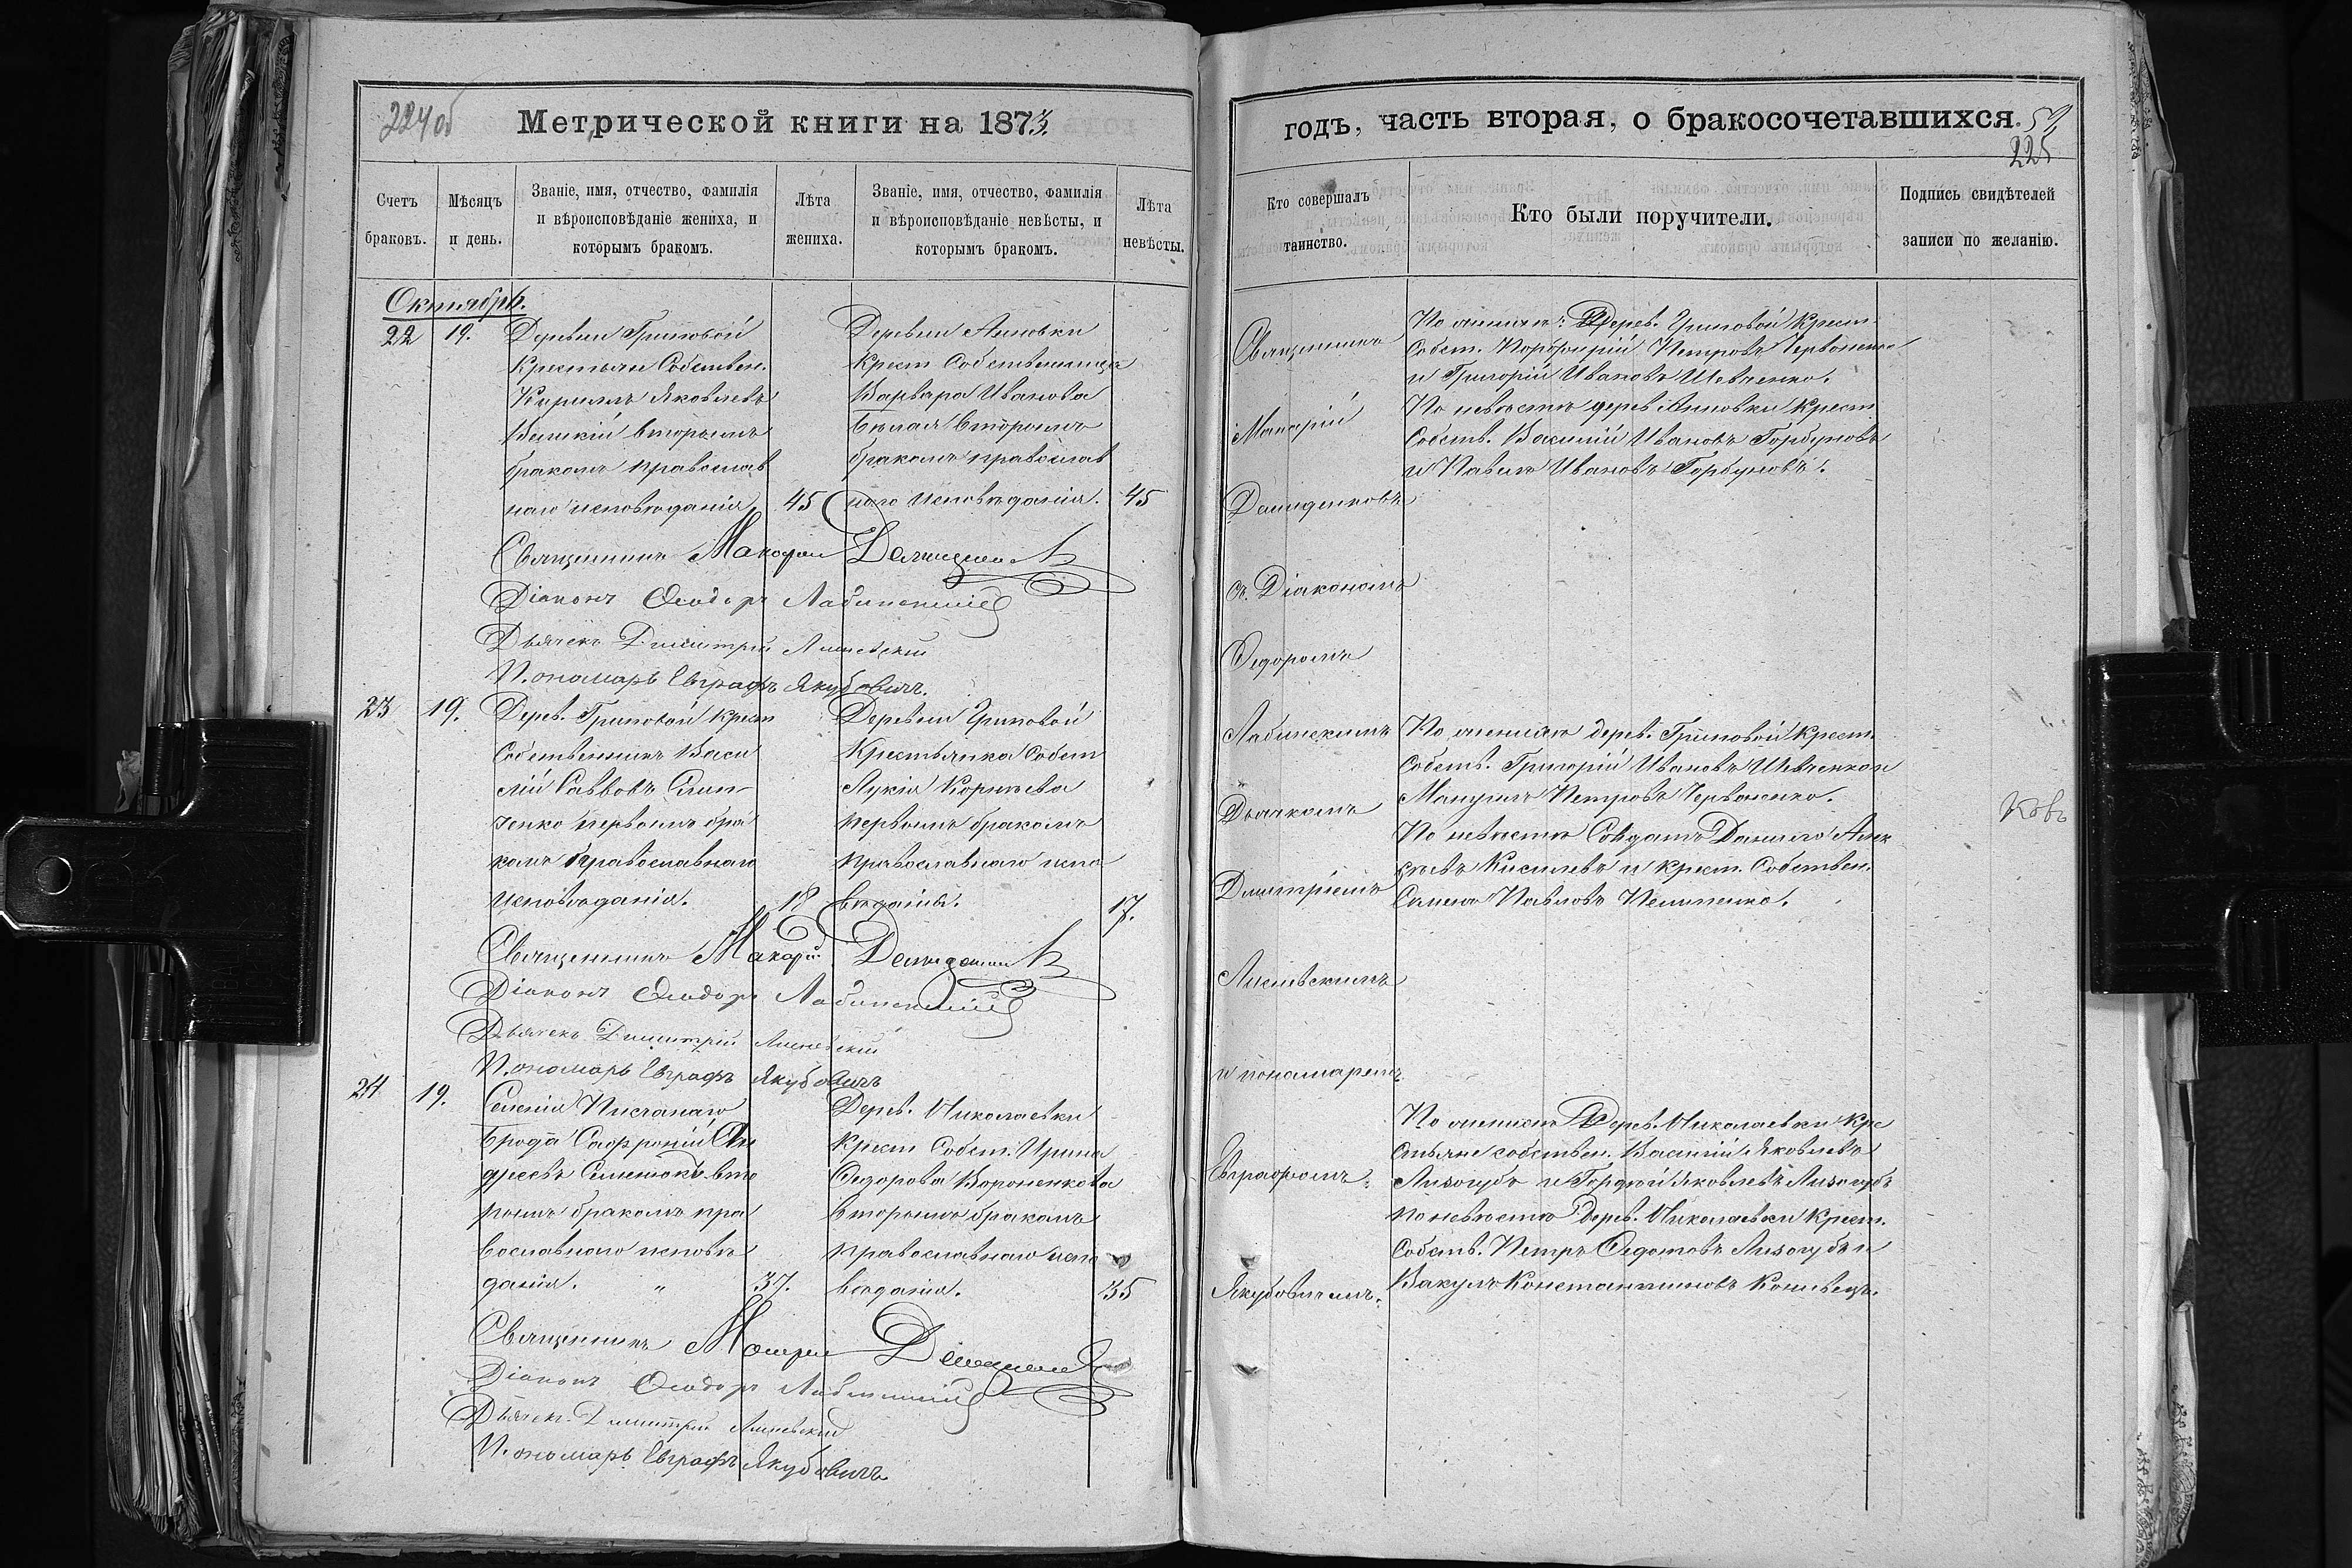 224об
Метрической книги на 1873.
Счетъ браковъ.
Мѣсяцъ и день.
Званіе, имя, отчество, фамилія и вѣроисповѣданіе жениха, и которымъ бракомъ.
Лѣта жениха.
Званіе, имя, отчество, фамилія и вѣроисповѣданіе невѣсты, и которымъ бракомъ.
Лѣта невѣсты.
Октябрь.
22
19.
Деревни Гриповой
Крестьян. Собствен.
Кириллъ Яковлевъ
вторымъ
бракомъ православ
наго исповѣданія
45
Деревни Анновки
Крест Собственница
Варвара Иванова
Бѣлая вторымъ
бракомъ православ
наго исповѣданія.
45
Священникъ Макарій
Діаконъ Ѳеодоръ Лабинскій
Дьячекъ Димитрій
Пономарь Евграфъ Якубовичъ.
23
19.
Дерев. Гриповой крест
Собственникъ Васи
лій Саввовъ
ченко первымъ бра
комъ православнаго
исповѣданія.
18
Деревни Гриповой
Крестьянка Собст
Лукія Корнѣева
первымъ бракомъ
православнаго испо
вѣданія.
17.
Священникъ Макарій
Діаконъ Ѳеодоръ Лабинскій
Дьячекъ Димитрій
Пономарь Евграфъ Якубовичъ
24
19.
Селенія Писчанаго
Брода Софроній Ан
дреевъ вто
рымъ бракомъ пра
вославнаго исповѣ
данія. "
37.
Дерев. Николаевки
Крест Собст. Ирина
Ѳедорова Вороненкова
вторымъ бракомъ
православнаго испо
вѣданія.
35
Священникъ Макарій
Діаконъ Ѳеодоръ Лабинскій
Дьячекъ Димитрій
Пономарь Евграфъ Якубовичъ
годъ, часть вторая, о бракосочетавшихся.
59
225
Кто совершалъ таинство.
Кто были поручители.
Подпись свидѣтелей записи по желанію.
Священникъ
Макарій
съ Діакономъ
Ѳедоромъ
Лабинскимъ
Дьячкомъ
Дмитріемъ
и пономаремъ
Евграфомъ
Якубовичемъ.
По женихѣ: Дерев. Гриповой Крест.
Собст. Порфирій Петровъ Червоненко
и Григорій Ивановъ Шевченко.
По невѣстѣ дерев Анновки Крест
Собств. Василій Ивановъ Горбуновъ
и Павелъ Ивановъ Горбуновъ.
По женихѣ дерев. Гриповой Крест.
Собств. Григорій Ивановъ Шевченко и
Мануилъ Петровъ Червоненко.
По невѣстѣ Солдатъ Данило Алек
сѣевъ Киселевъ и крест. Собствен.
Семенъ Павловъ
По женихѣ Дерев. Николаевки Кре
стьяне собствен. Василій Яковлевъ
Лизогубъ и Гордѣй Яковлевъ Лизогубъ
по невѣстѣ дерев. Николаевки Крест.
Собств. Петръ Ѳедотовъ Лизогубъ и
Вакулъ Константиновъ